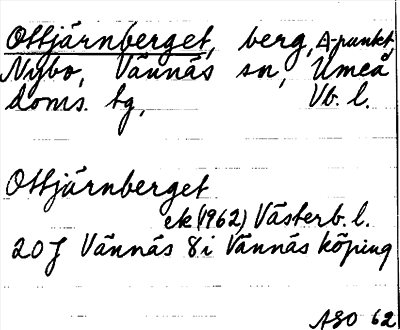 Ottjärnberget, berg, Δ-punkt,
Nybo, Vännäs sn, Umeå
doms. tg, Vb. l.
Ottjärnberget
ek (1962) Västerb. l.
20 J Vännäs 8i Vännäs köping
ASO 62